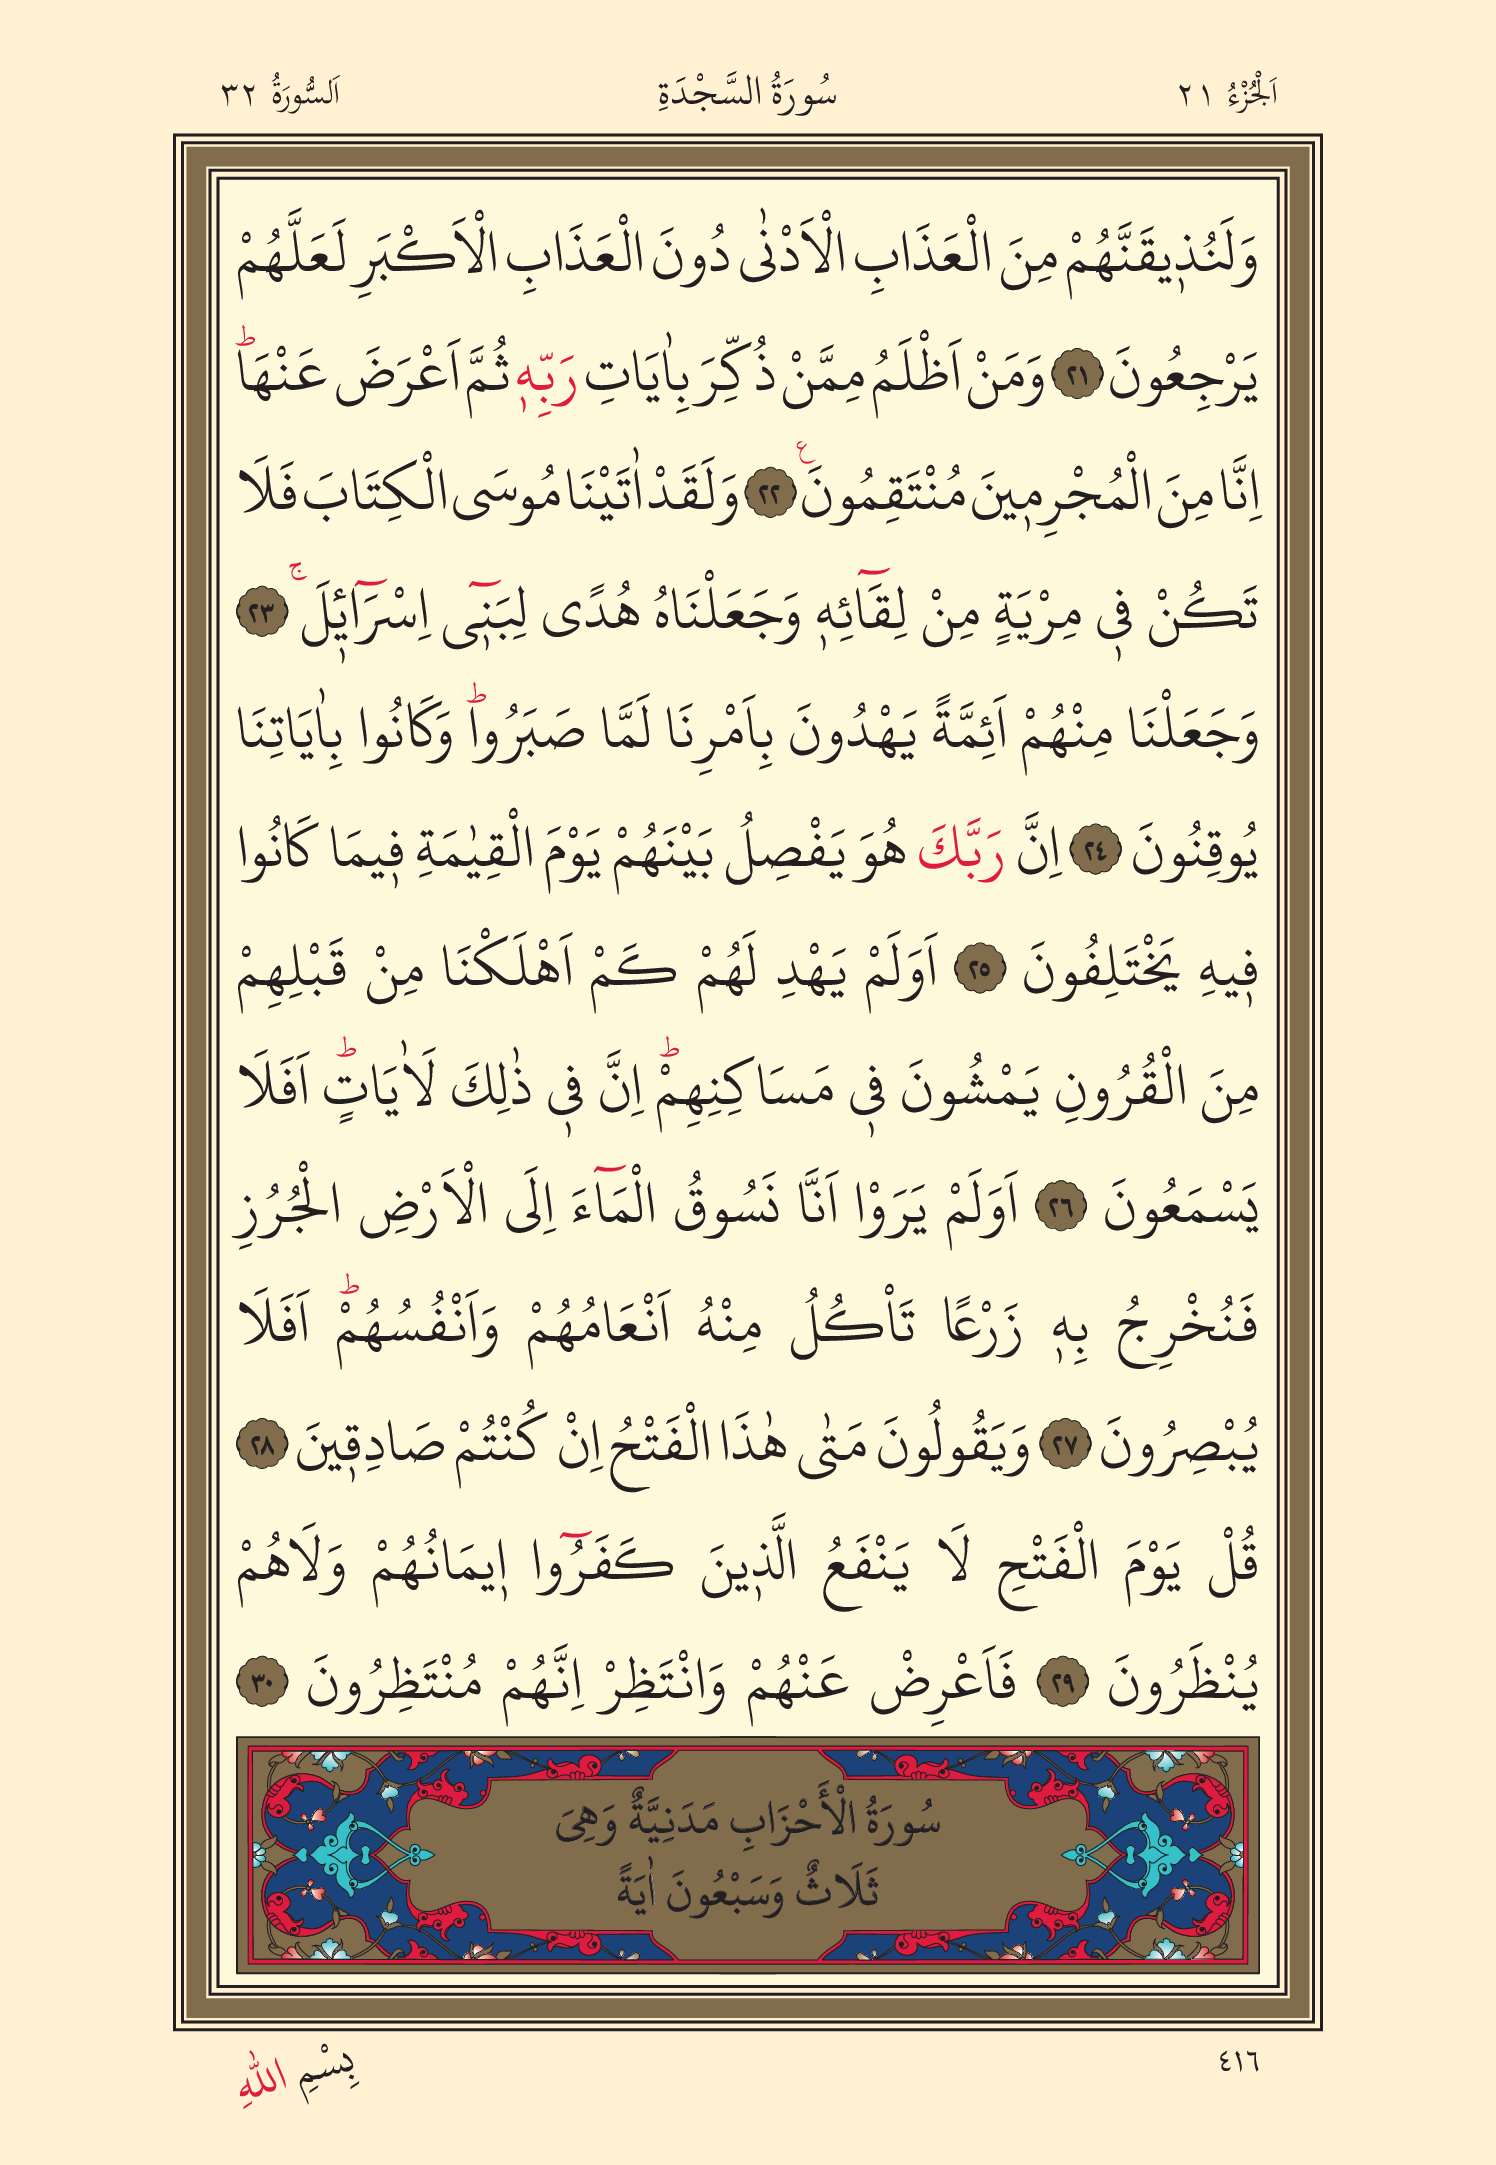 اَلْجُزْءُ ٢١ سُورَةُ السَّجْدَةِ اَلسُّورَةُ ٣٢
وَلَنُذ۪يقَنَّهُمْ مِنَ الْعَذَابِ الْاَدْنٰى دُونَ الْعَذَابِ الْاَكْبَرِ لَعَلَّهُمْ
يَرْجِعُونَ ٢١ وَمَنْ اَظْلَمُ مِمَّنْ ذُكِّرَ بِاٰيَاتِ رَبِّه۪ ثُمَّ اَعْرَضَ عَنْهَاۜ
اِنَّا مِنَ الْمُجْرِم۪ينَ مُنْتَقِمُونَ۟ ٢٢ وَلَقَدْ اٰتَيْنَا مُوسَى الْكِتَابَ فَلَا
تَكُنْ ف۪ي مِرْيَةٍ مِنْ لِقَٓائِه۪ وَجَعَلْنَاهُ هُدًى لِبَن۪ٓي اِسْرَٓاء۪يلَۚ ٢٣
وَجَعَلْنَا مِنْهُمْ اَئِمَّةً يَهْدُونَ بِاَمْرِنَا لَمَّا صَبَرُواۜ وَكَانُوا بِاٰيَاتِنَا
يُوقِنُونَ ٢٤ اِنَّ رَبَّكَ هُوَ يَفْصِلُ بَيْنَهُمْ يَوْمَ الْقِيٰمَةِ ف۪يمَا كَانُوا
ف۪يهِ يَخْتَلِفُونَ ٢٥ اَوَلَمْ يَهْدِ لَهُمْ كَمْ اَهْلَكْنَا مِنْ قَبْلِهِمْ
مِنَ الْقُرُونِ يَمْشُونَ ف۪ي مَسَاكِنِهِمْۜ اِنَّ ف۪ي ذٰلِكَ لَاٰيَاتٍۜ اَفَلَا
يَسْمَعُونَ ٢٦ اَوَلَمْ يَرَوْا اَنَّا نَسُوقُ الْمَٓاءَ اِلَى الْاَرْضِ الْجُرُزِ
فَنُخْرِجُ بِه۪ زَرْعًا تَاْكُلُ مِنْهُ اَنْعَامُهُمْ وَاَنْفُسُهُمْۜ اَفَلَا
يُبْصِرُونَ ٢٧ وَيَقُولُونَ مَتٰى هٰذَا الْفَتْحُ اِنْ كُنْتُمْ صَادِق۪ينَ ٢٨
قُلْ يَوْمَ الْفَتْحِ لَا يَنْفَعُ الَّذ۪ينَ كَفَرُٓوا ا۪يمَانُهُمْ وَلَاهُمْ
يُنْظَرُونَ ٢٩ فَاَعْرِضْ عَنْهُمْ وَانْتَظِرْ اِنَّهُمْ مُنْتَظِرُونَ ٣٠
سُورَةُ الْأَحْزَابِ مَدَنِيَّةٌ وَهِىَ
ثَلَاثٌ وَسَبْعُونَ اٰيَةً
٤١٦ بِسْمِ اللّٰهِ